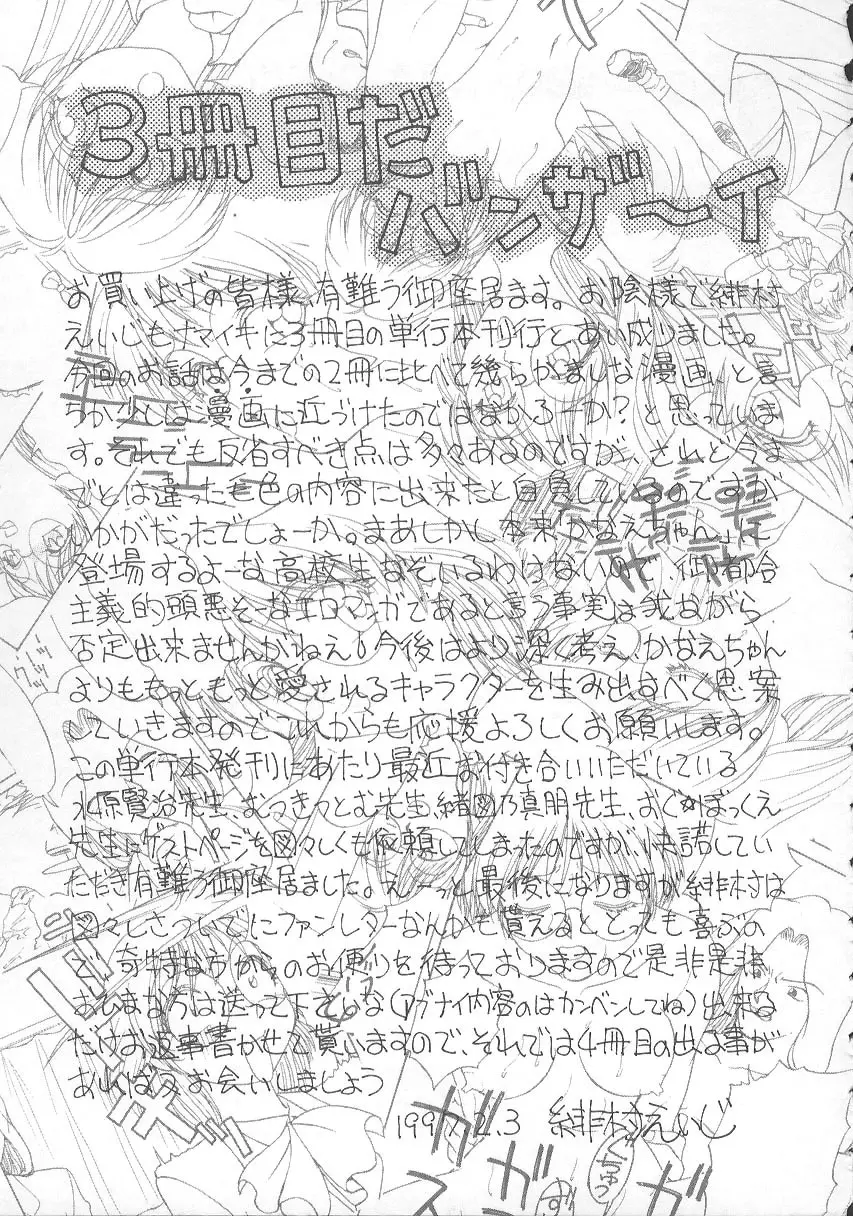 3冊目だ
バンザ〜イ
お買い上げの皆様、有難う御座居ます。お陰様で緋村
えいじもナマイキに3冊目の単行本刊行とあい成りました。
今回のお話は今までの2冊に比べて幾らかましな漫画、と言
ちか少しは漫画に近づけたのではなかろーか?と思っていま
す。それでも反省すべき点は多々あるのですが、されど今ま
でとは違った毛色の内容に出来たと自負しているのですが
いかがだったでしょーか。まあしかし本来「かなえちゃん」に
登場するよーな高校生なぞいるわけないので、御都合
主義的頭悪そーなエロマンガであると言う事実は我ながら
否定出来ませんがねえ!今後はより深く考え、かなえちゃん
よりももっともっと愛されるキャラクターを生み出すべく思案
していきますのでこれからも応援よろしくお願いします。
この単行本発刊にあたり最近お付き合いいただいている
水原賢治先生、むつきつとむ先生、緒図乃真明先生、おぐ☆ぼっくえ
先生にゲストページを図々しくも依頼してしまったのですが、快諾してい
ただき有難う御座居ました。え〜っと最後になりますが緋村は
図々しさついでにファンレターなんかも貰えるととっても喜ぶの
で、奇特な方からのお便りを待っておりますので是非是非
おひまなうは送って下さいな(アブナイ内容のはカンベンしてね)出来る
だけお返事書かせて貰いますので、それでは4冊目の出る事が
あれば又お会いしましょう
1997.2.3 緋村えいじ
ガガガ
くちゅっ